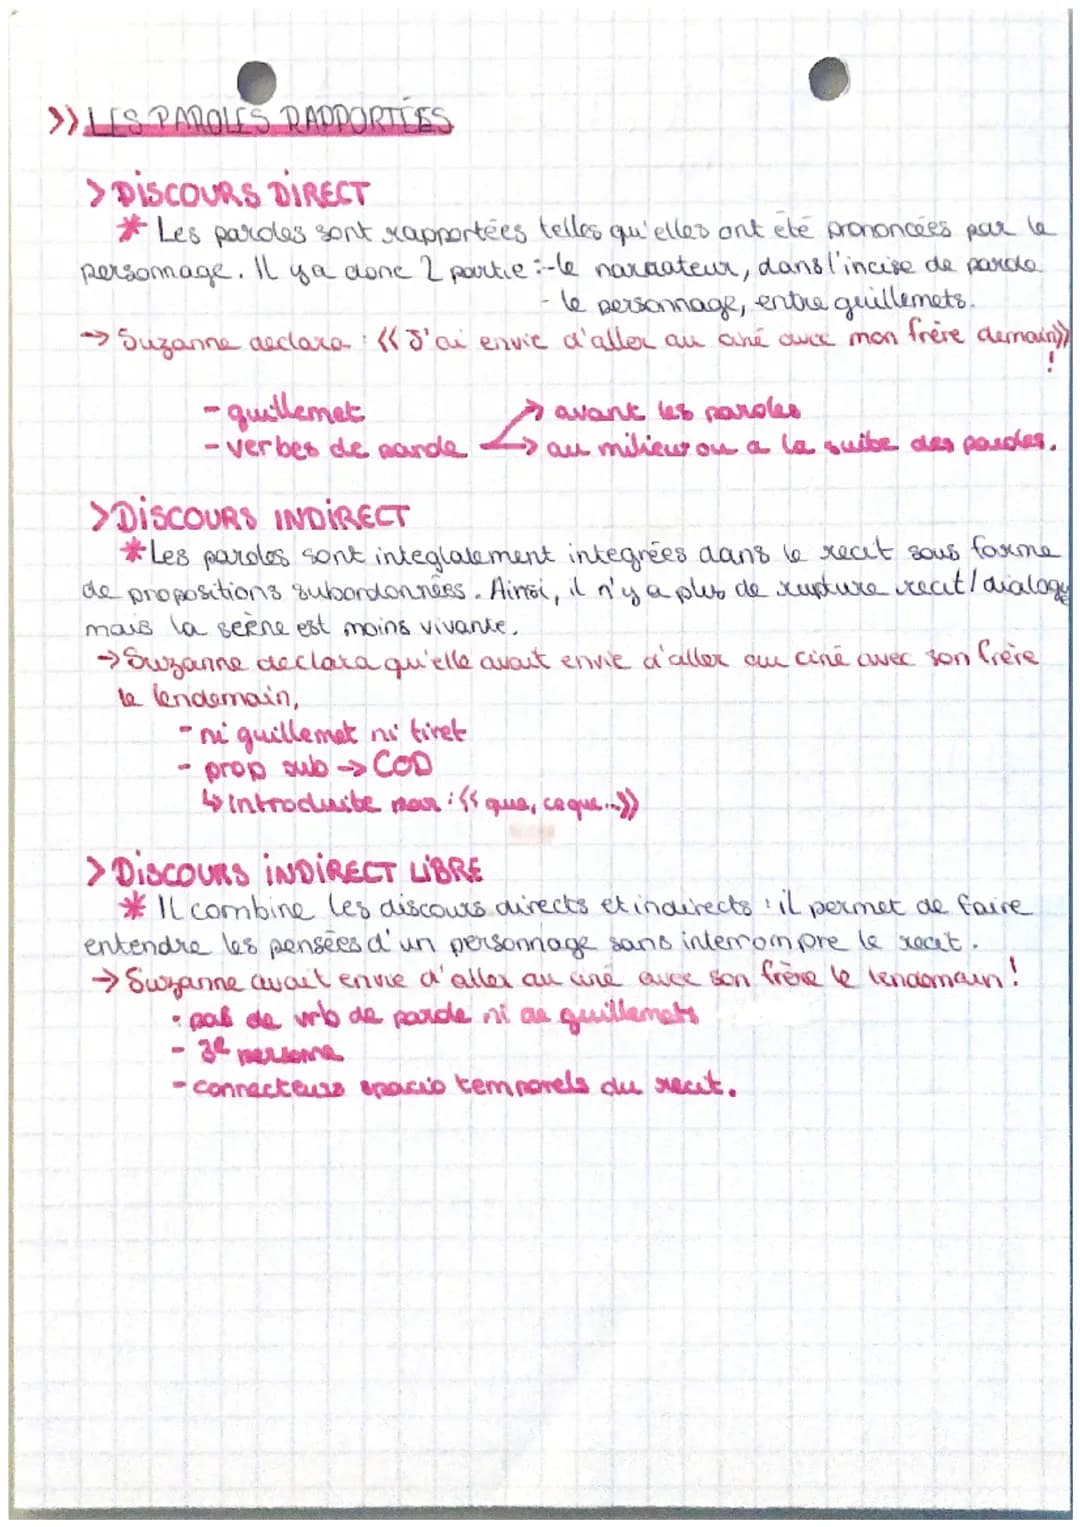 >> LES PAROLES RAPPORTÉES
> DISCOURS DIRECT
* Les paroles sont rapportées telles qu'elles ont été prononcées par le
personnage. Il y a donc 2 partie : - le narrateur, dans l'incise de parole
- le personnage, entre guillemets.
→ Suzanne declara : << J'ai envie d'aller au ciné avec mon frère demain >>
!
- guillemet
→ avant les paroles
- verbes de parole → au milieu ou a la suite des paroles.
> DISCOURS INDIRECT
* Les paroles sont integralement integrées dans le recit sous forme
de propositions subordonnées. Ainsi, il n'y a plus de rupture recit / dialogue
mais la scène est moins vivante.
→ Suzanne declara qu'elle avait envie d'aller au ciné avec son frère
le lendemain,
- ni guillemet ni tiret
- prop sub → COD
↳ introduite par : << que, ce que... >>
> DISCOURS INDIRECT LIBRE
* Il combine les discours directs et indirects : il permet de faire
entendre les pensées d'un personnage sans interrompre le recit.
→ Suzanne avait envie d'aller au ciné avec son frère le lendemain !
• pas de vrb de parole ni de guillemets
- 3e personne
- connecteurs spacio temporels du recit.